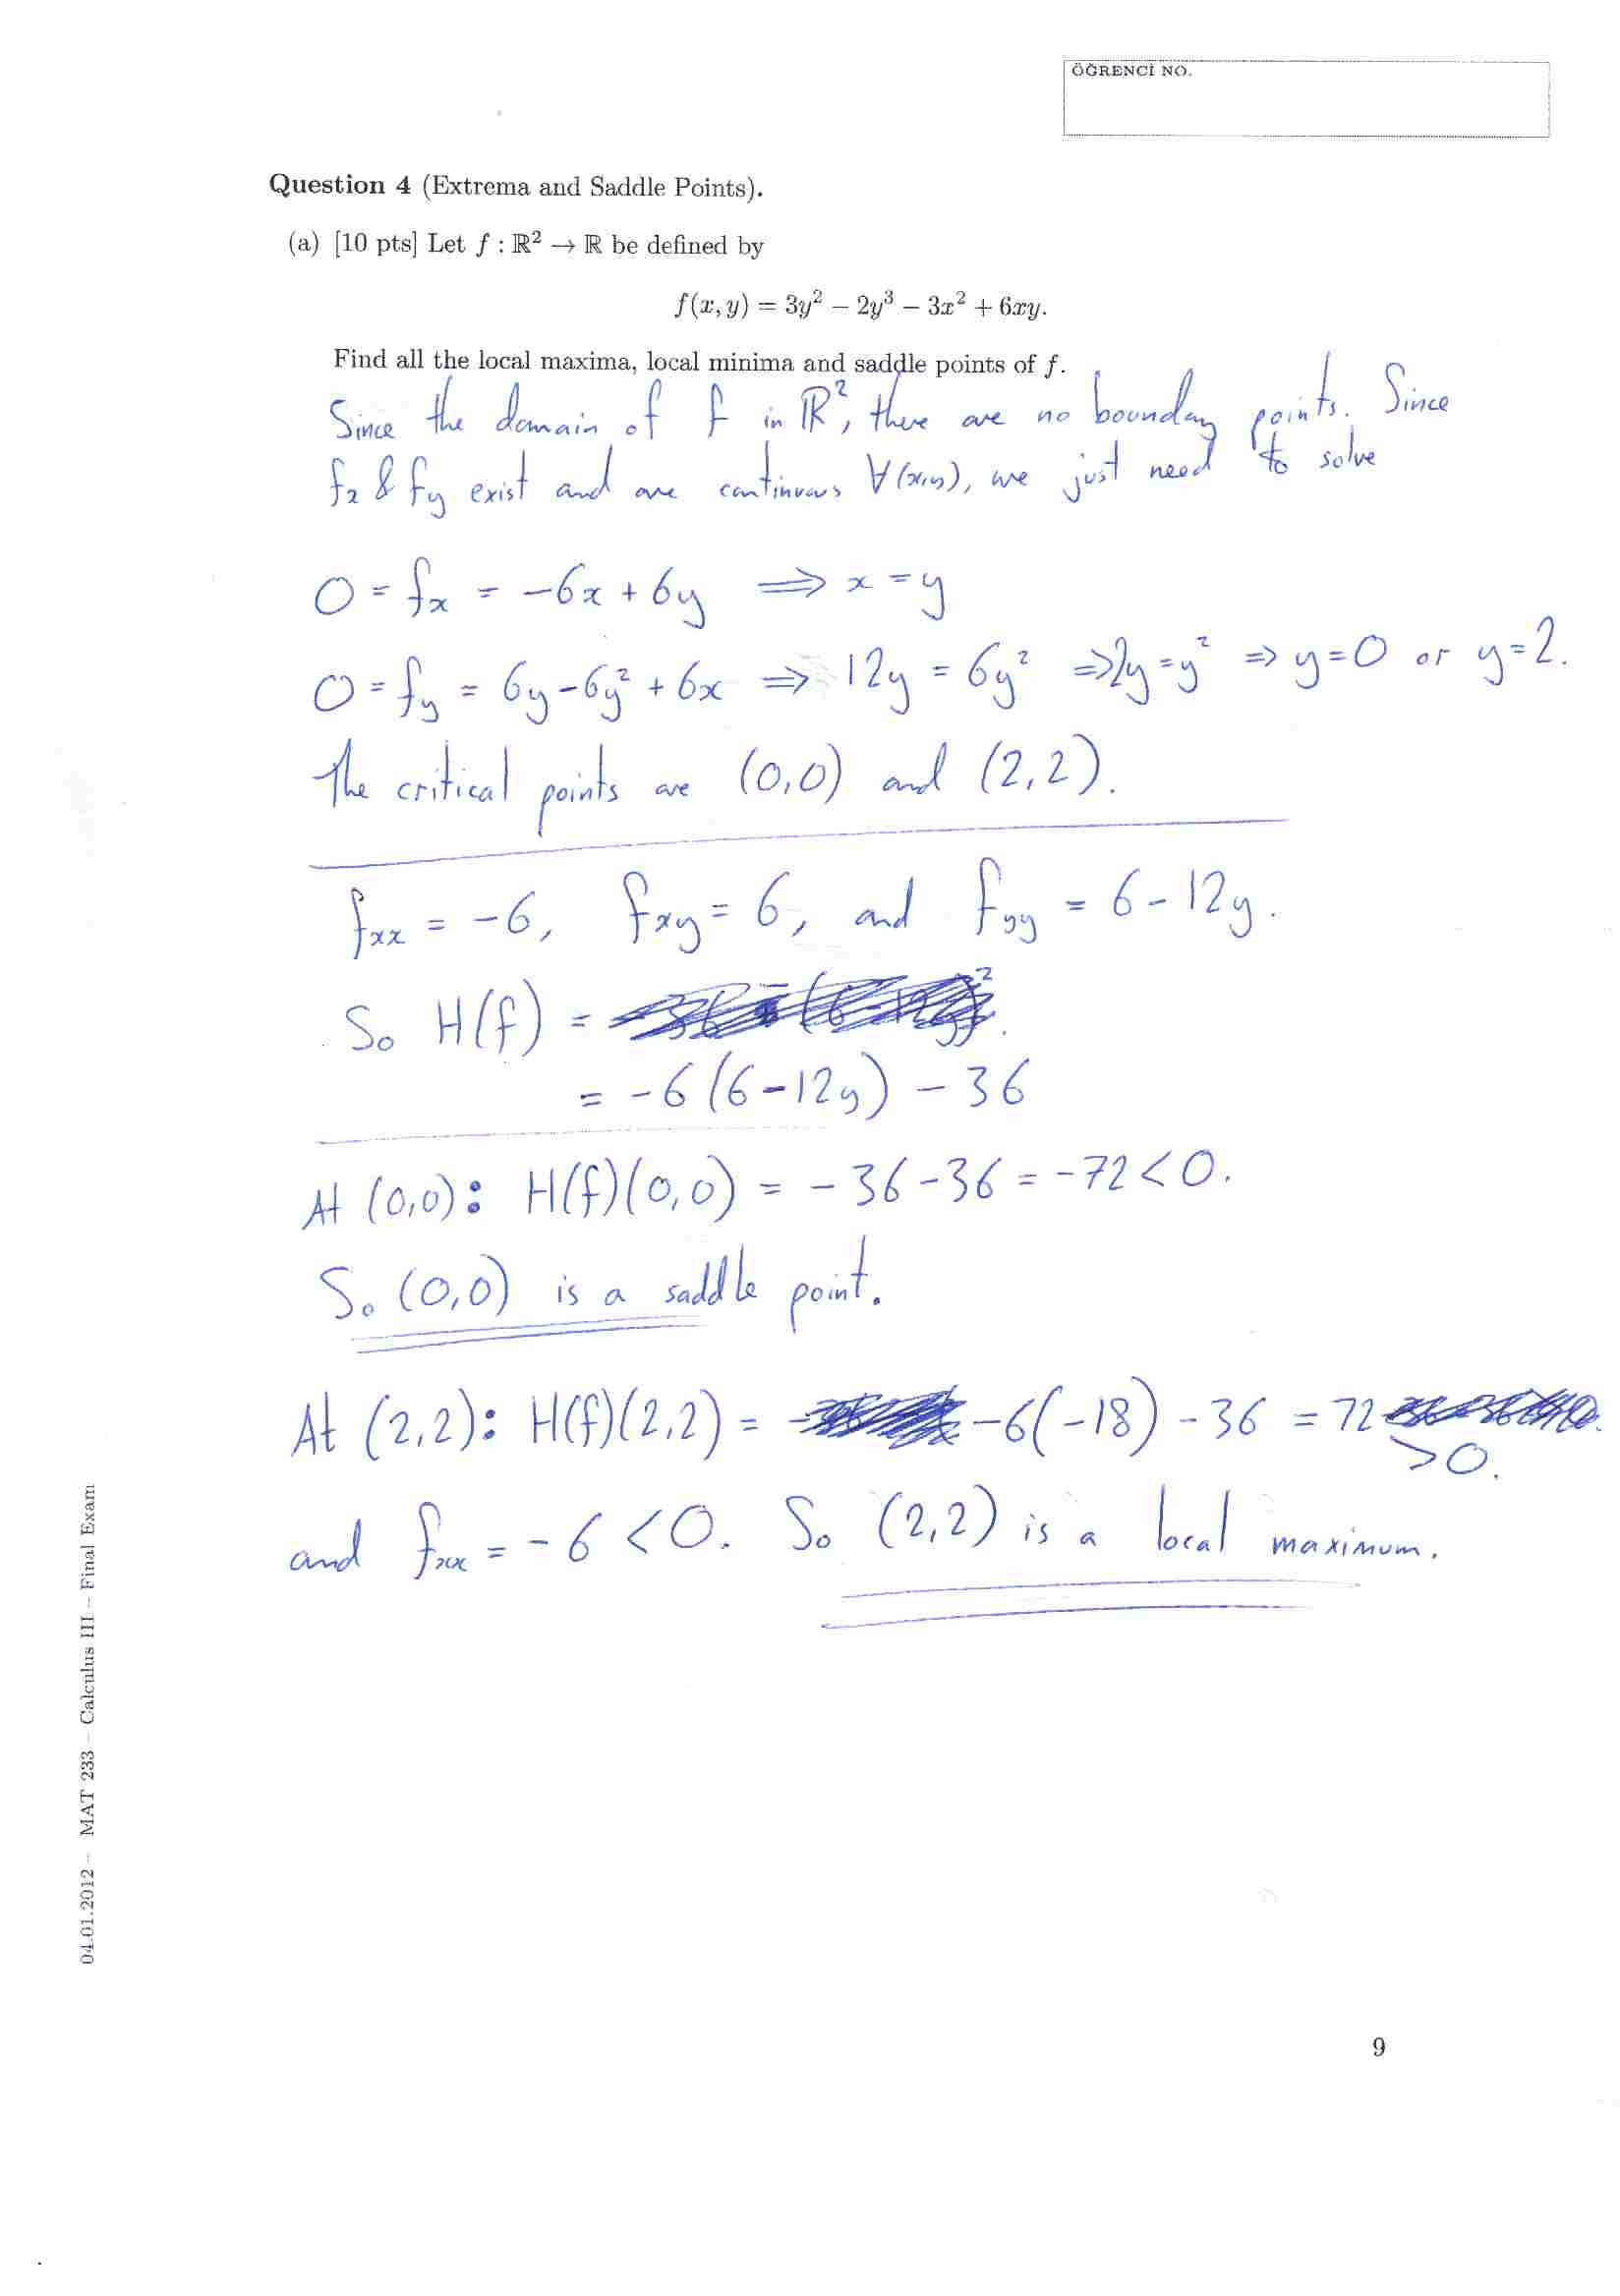 ÖĞRENCİ NO.
Question 4 (Extrema and Saddle Points).
(a) [10 pts] Let f : ℝ² → ℝ be defined by
f(x, y) = 3y² − 2y³ − 3x² + 6xy.
Find all the local maxima, local minima and saddle points of f.
Since the domain of f in ℝ², there are no boundary points. Since
fx & fy exist and are continuous ∀(x,y), we just need to solve
0 = fx = -6x + 6y ⟹ x = y
0 = fy = 6y - 6y² + 6x ⟹ 12y = 6y² ⟹ 2y = y² ⟹ y = 0 or y = 2.
The critical points are (0,0) and (2,2).
fxx = -6, fxy = 6, and fyy = 6 - 12y.
So H(f) =
= -6(6-12y) - 36
At (0,0): H(f)(0,0) = -36-36 = -72 < 0.
So (0,0) is a saddle point.
At (2,2): H(f)(2,2) = -6(-18) - 36 = 72
> 0.
and fxx = -6 < 0. So (2,2) is a local maximum.
04.01.2012 – MAT 233 – Calculus III – Final Exam
9